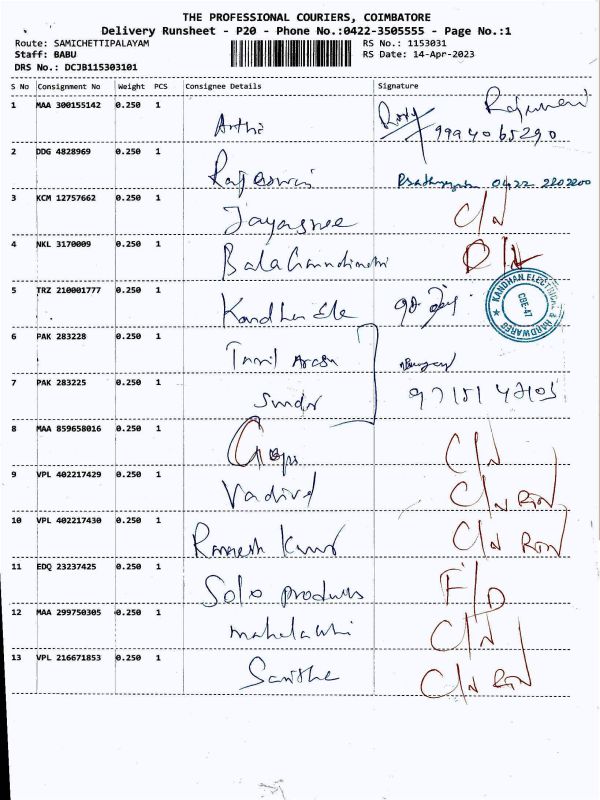 THE PROFESSIONAL COURIERS, COIMBATORE
Delivery Runsheet - P20 - Phone No.:0422-3505555 - Page No.:1
Route: SAMICHETTIPALAYAM RS No.: 1153031
Staff: BABU RS Date: 14-Apr-2023
DRS No.: DCJB115303101
S No Consignment No Weight PCS Consignee Details Signature
1 MAA 300155142 0.250 1 Arthi
9994065290
2 DDG 4828969 0.250 1 0422 2202200
3 KCM 12757662 0.250 1 Jayasree C/N
4 NKL 3170009 0.250 1
5 TRZ 210001777 0.250 1 Kandhan Ele
KANDHAN ELECTRICAL & HARDWARES
CBE-47
6 PAK 283228 0.250 1 Tamil Arasu
7 PAK 283225 0.250 1
8 MAA 859658016 0.250 1 C/N
9 VPL 402217429 0.250 1 Vadivel C/N RTN
10 VPL 402217430 0.250 1 Ramesh Kumar C/N RTN
11 EDQ 23237425 0.250 1 Solo products F/D
12 MAA 299750305 0.250 1 C/N
13 VPL 216671853 0.250 1 C/N RTN